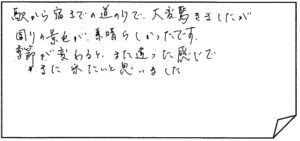 駅から宿までの道のりで、大変驚きましたが
周りの景色が、素晴らしかったです。
季節が変わると、また違った感じで
また来たいと思いました